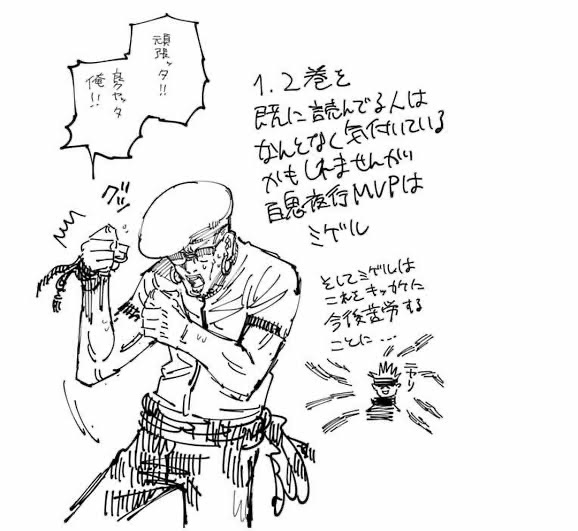 頑張ッタ!!
良クヤッタ
俺!!
グッ
1.2巻を
既に読んでる人は
なんとなく気付いている
かもしれませんが
百鬼夜行MVPは
ミゲル
そしてミゲルは
これをキッカケに
今後苦労する
ことに…
ニヤリ